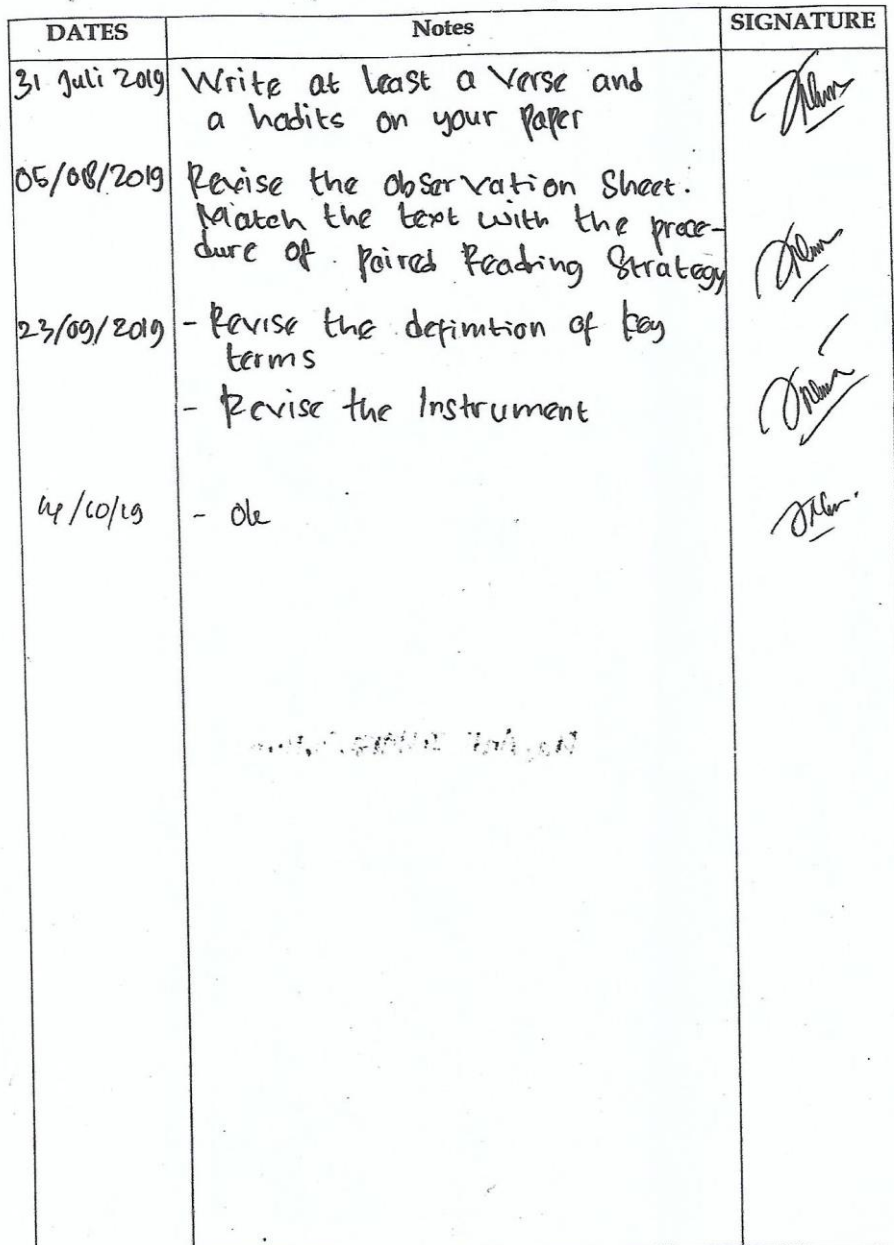 DATES Notes SIGNATURE
31 Juli 2019 Write at least a Verse and
a hadits on your paper
05/08/2019 Revise the observation Sheet.
Match the text with the proce-
dure of Paired Reading Strategy
23/09/2019 - Revise the definition of key
terms
- Revise the Instrument
/10/19 - Ok